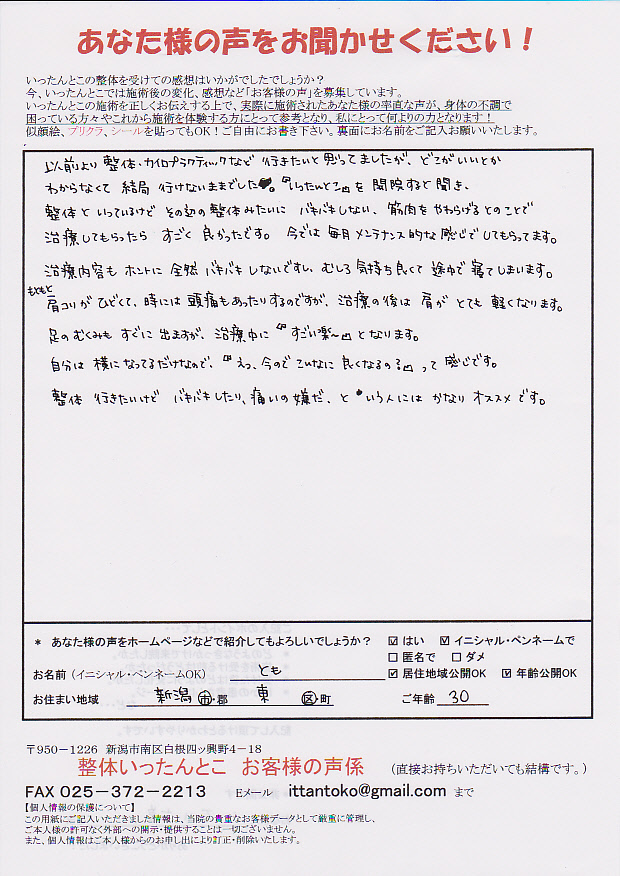 あなた様の声をお聞かせください！
いったんとこの整体を受けての感想はいかがでしたでしょうか？
今、いったんとこでは施術後の変化、感想など「お客様の声」を募集しています。
いったんとこの施術を正しくお伝えする上で、実際に施術されたあなた様の率直な声が、身体の不調で
困っている方々やこれから施術を体験する方にとって参考となり、私にとって何よりの力となります！
似顔絵、プリクラ、シールを貼ってもOK！ご自由にお書き下さい。裏面にお名前をご記入お願いいたします。
以前より 整体・カイロプラクティックなど 行きたいと思ってましたが、どこがいいとか
わからなくて 結局 行けないままでした。『いったんとこ』を開院すると聞き、
整体といっているけど その辺の整体みたいに バキバキしない、筋肉をやわらげるとのことで
治療してもらったら すごく 良かったです。 今では 毎月 メンテナンス的な 感じでしてもらってます。
治療内容も ホントに 全然 バキバキ しないですし、むしろ 気持ち良くて 途中で 寝てしまいます。
もともと
肩コリが ひどくて、時には 頭痛もあったりするのですが、治療の後は 肩が とても 軽くなります。
足のむくみも すぐに 出ますが、治療中に『すごい楽〜』となります。
自分は 横になってるだけなので、『えっ、今ので こんなに 良くなるの？』って 感じです。
整体 行きたいけど バキバキしたり、痛いの嫌だ、と いう人には かなり オススメです。
* あなた様の声をホームページなどで紹介してもよろしいでしょうか？ ☑ はい ☑ イニシャル・ペンネームで
□ 匿名で □ ダメ
お名前（イニシャル・ペンネームOK） とも ☑ 居住地域公開OK ☑ 年齢公開OK
お住まい地域 新潟 市・郡 東 区・町 ご年齢 30
〒950－1226 新潟市南区白根四ッ興野4－18
整体いったんとこ お客様の声係 （直接お持ちいただいても結構です。）
FAX 025－372－2213 Eメール ittantoko@gmail.com まで
【個人情報の保護について】
この用紙にご記入いただきました情報は、当院の貴重なお客様データとして厳重に管理し、
ご本人様の許可なく外部への開示・提供することは一切ございません。
また、個人情報はご本人様からのお申し出により訂正・削除いたします。